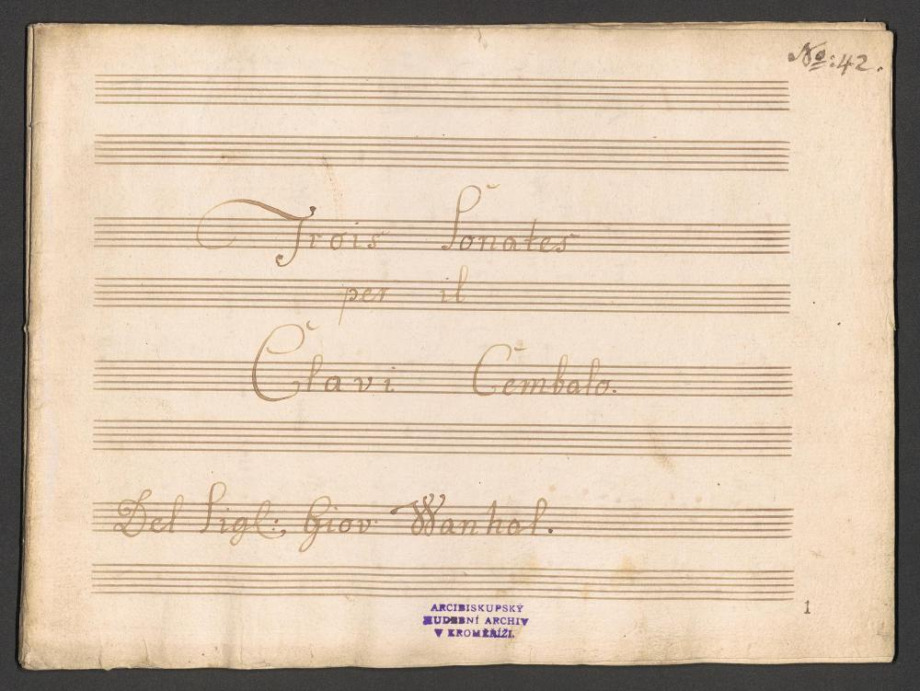 No: 42.
Trois Sonates
per il
Clavi Cembalo.
Del Sigl: Giov Wanhal.
1
ARCIBISKUPSKÝ
HUDEBNÍ ARCHIV
V KROMĚŘÍŽI.